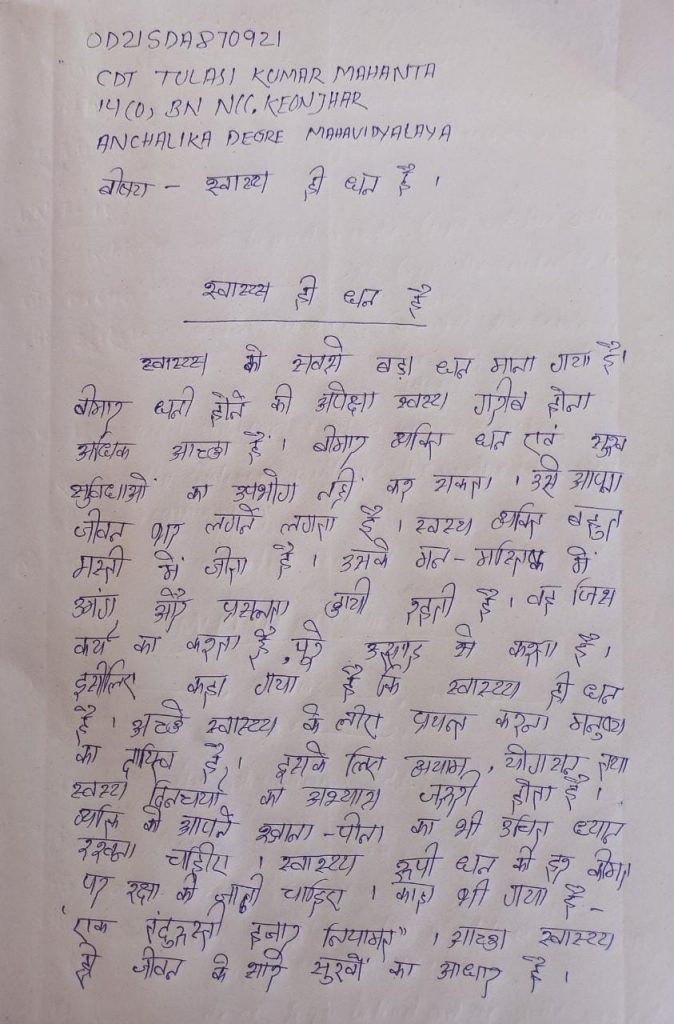 OD21SDA870921
CDT TULASI KUMAR MAHANTA
14(O) BN NCC, KEONJHAR
ANCHALIKA DEGRE MAHAVIDYALAYA
बीषय - स्वास्थ्य ही धन है ।
स्वास्थ्य ही धन है
स्वास्थ्य को सबसे बड़ा धन माना गया है।
बीमार धनी होने की अपेक्षा स्वस्थ गरीब होना
अधिक आच्छा हैं । बीमार व्यक्ति धन एवं सुख
सुविधाओं का उपभोग नहीं कर सकता । उसे आपना
जीवन भार लगने लगता है । स्वस्थ व्यक्ति बहुत
मस्ती में जीता है । उसके मन - मस्तिष्क में
और प्रसन्नता छायी रहती है । वह जिस
कार्य का करता है, पुरे उत्साह से करता है ।
इसीलिए कहा गया है कि स्वास्थ्य ही धन
है । अच्छे स्वास्थ्य के लीए प्रयत्न करना मनुष्य
का दायित्व है । इसके लिए ब्यायाम, योगासन तथा
स्वस्थ दिनचर्या का अभ्यास जरुरी होता है ।
व्यक्ति को आपने खाना - पीना का भी उचित ध्यान
रखना चाहीए । स्वास्थ्य रूपी धन की हर कीमत
पर रक्षा की जानी चाहिए । काहा भी गया है -
"एक तंदुरुस्ती हजार नियामत" । आच्छा स्वास्थ्य
ही जीवन के सारे सुखों का आधार है ।